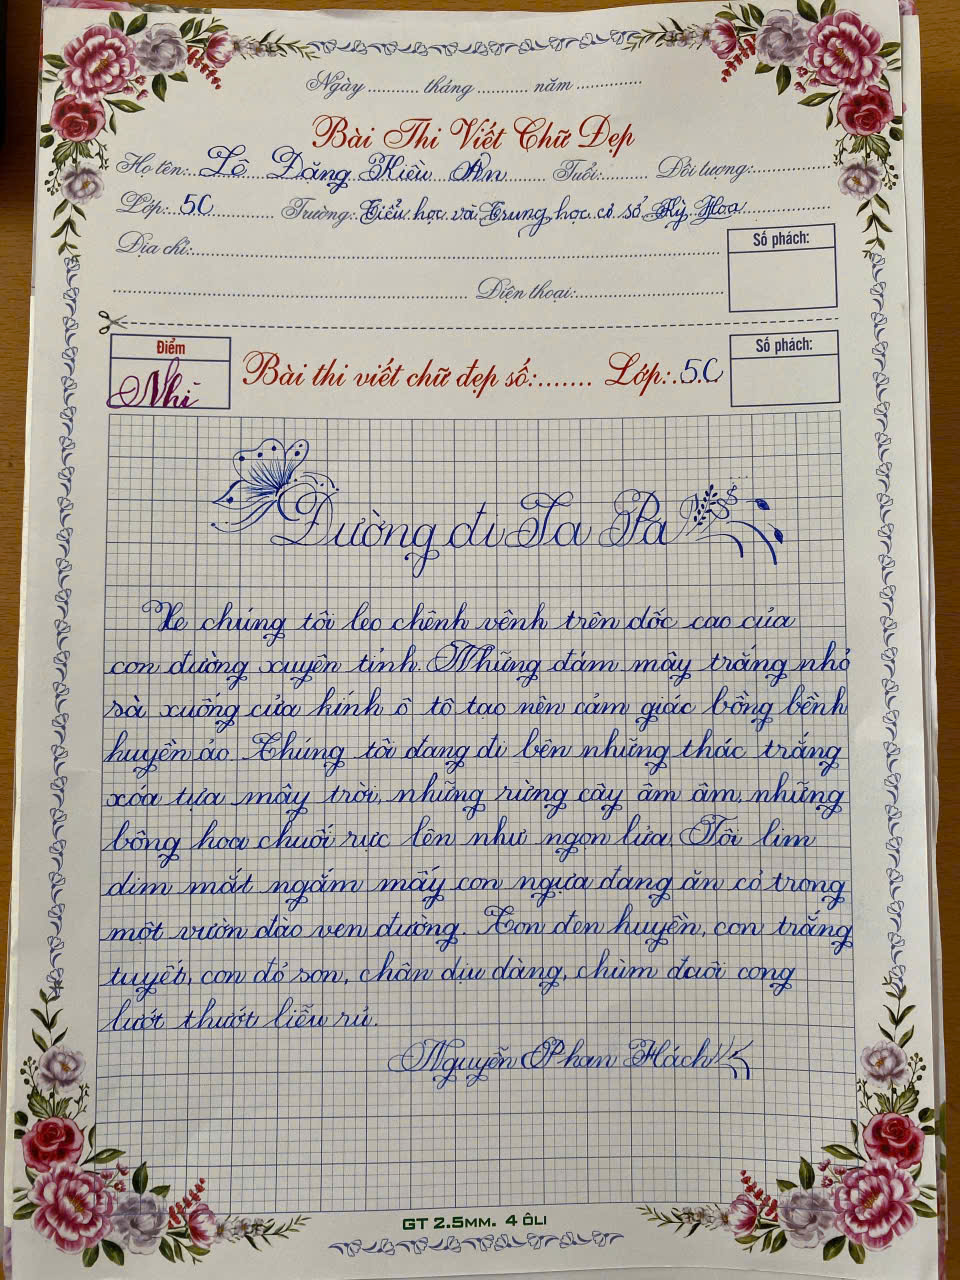 Ngày.......... tháng.......... năm.............
Bài Thi Viết Chữ Đẹp
Họ tên: Lô Đăng Kiều An Tuổi:.......... Đối tượng:..............
Lớp: 5C Trường: Tiểu học và Trung học cơ sở Kỳ Hoa
Địa chỉ:
Số phách:
Điện thoại:
Điểm
Nhì
Bài thi viết chữ đẹp số:....... Lớp: 5C
Số phách:
Đường đi Sa Pa
Xe chúng tôi leo chênh vênh trên dốc cao của
con đường xuyên tỉnh. Những đám mây trắng nhỏ
sà xuống cửa kính ô tô tạo nên cảm giác bồng bềnh
huyền ảo. Chúng tôi đang đi bên những thác trắng
xóa tựa mây trời, những rừng cây âm âm, những
bông hoa chuối rực lên như ngọn lửa. Tôi lim
dim mắt ngắm mấy con ngựa đang ăn cỏ trong
một vườn đào ven đường. Con đen huyền, con trắng
tuyết, con đỏ son, chân dịu dàng, chùm đuôi cong
lướt thướt liễu rủ.
Nguyễn Phan Hách
GT 2.5MM. 4 ÔLI